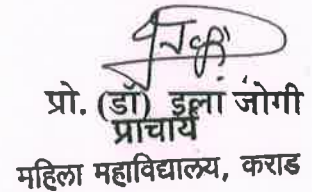 प्रो. (डॉ) इलां जोगी
प्राचार्य
महिला महाविद्यालय, कराड